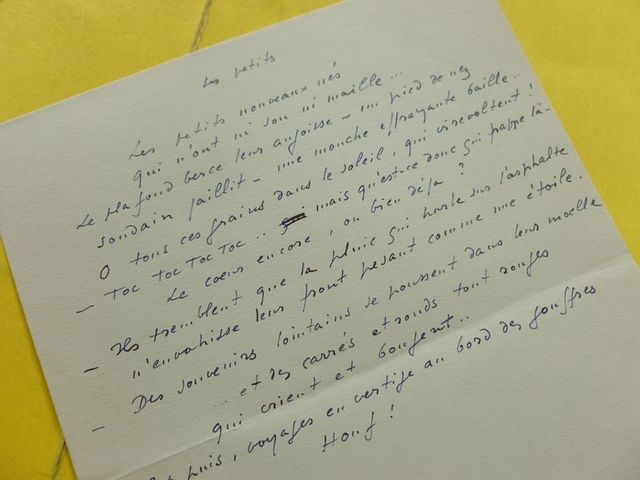 Les petits
Les petits nouveaux nés
qui n'ont ni sou ni maille...
Le plafond berce leur angoisse - un pied de nez
soudain jaillit - une mouche effrayante baille..
O tous ces grains dans le soleil, qui virevoltent !
- Toc Toc Toc Toc .. mais qu'est-ce donc qui frappe là-
Le coeur encore, ou bien déjà ?
- Ils tremblent que la pluie qui hurle sur l'asphalte
n'envahisse leur front pesant comme une étoile.
- Des souvenirs lointains se poussent dans leur moelle
... et des carrés et ronds tout rouges
qui crient et bougent...
puis, voyages en vertige au bord des gouffres
Houf !